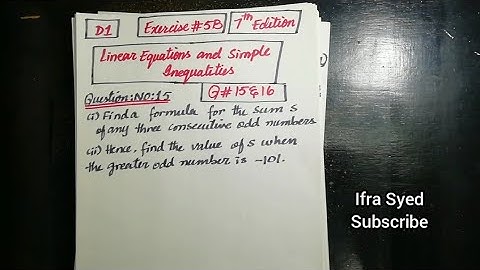 D1 Exercise #5B 7th Edition
Linear Equations and Simple
Inequalities
Question:NO:15 Q#15&16
(i) Find a formula for the sum S
of any three consecutive odd numbers
(ii) Hence, find the value of S when
the greater odd number is -101.
Ifra Syed
Subscribe